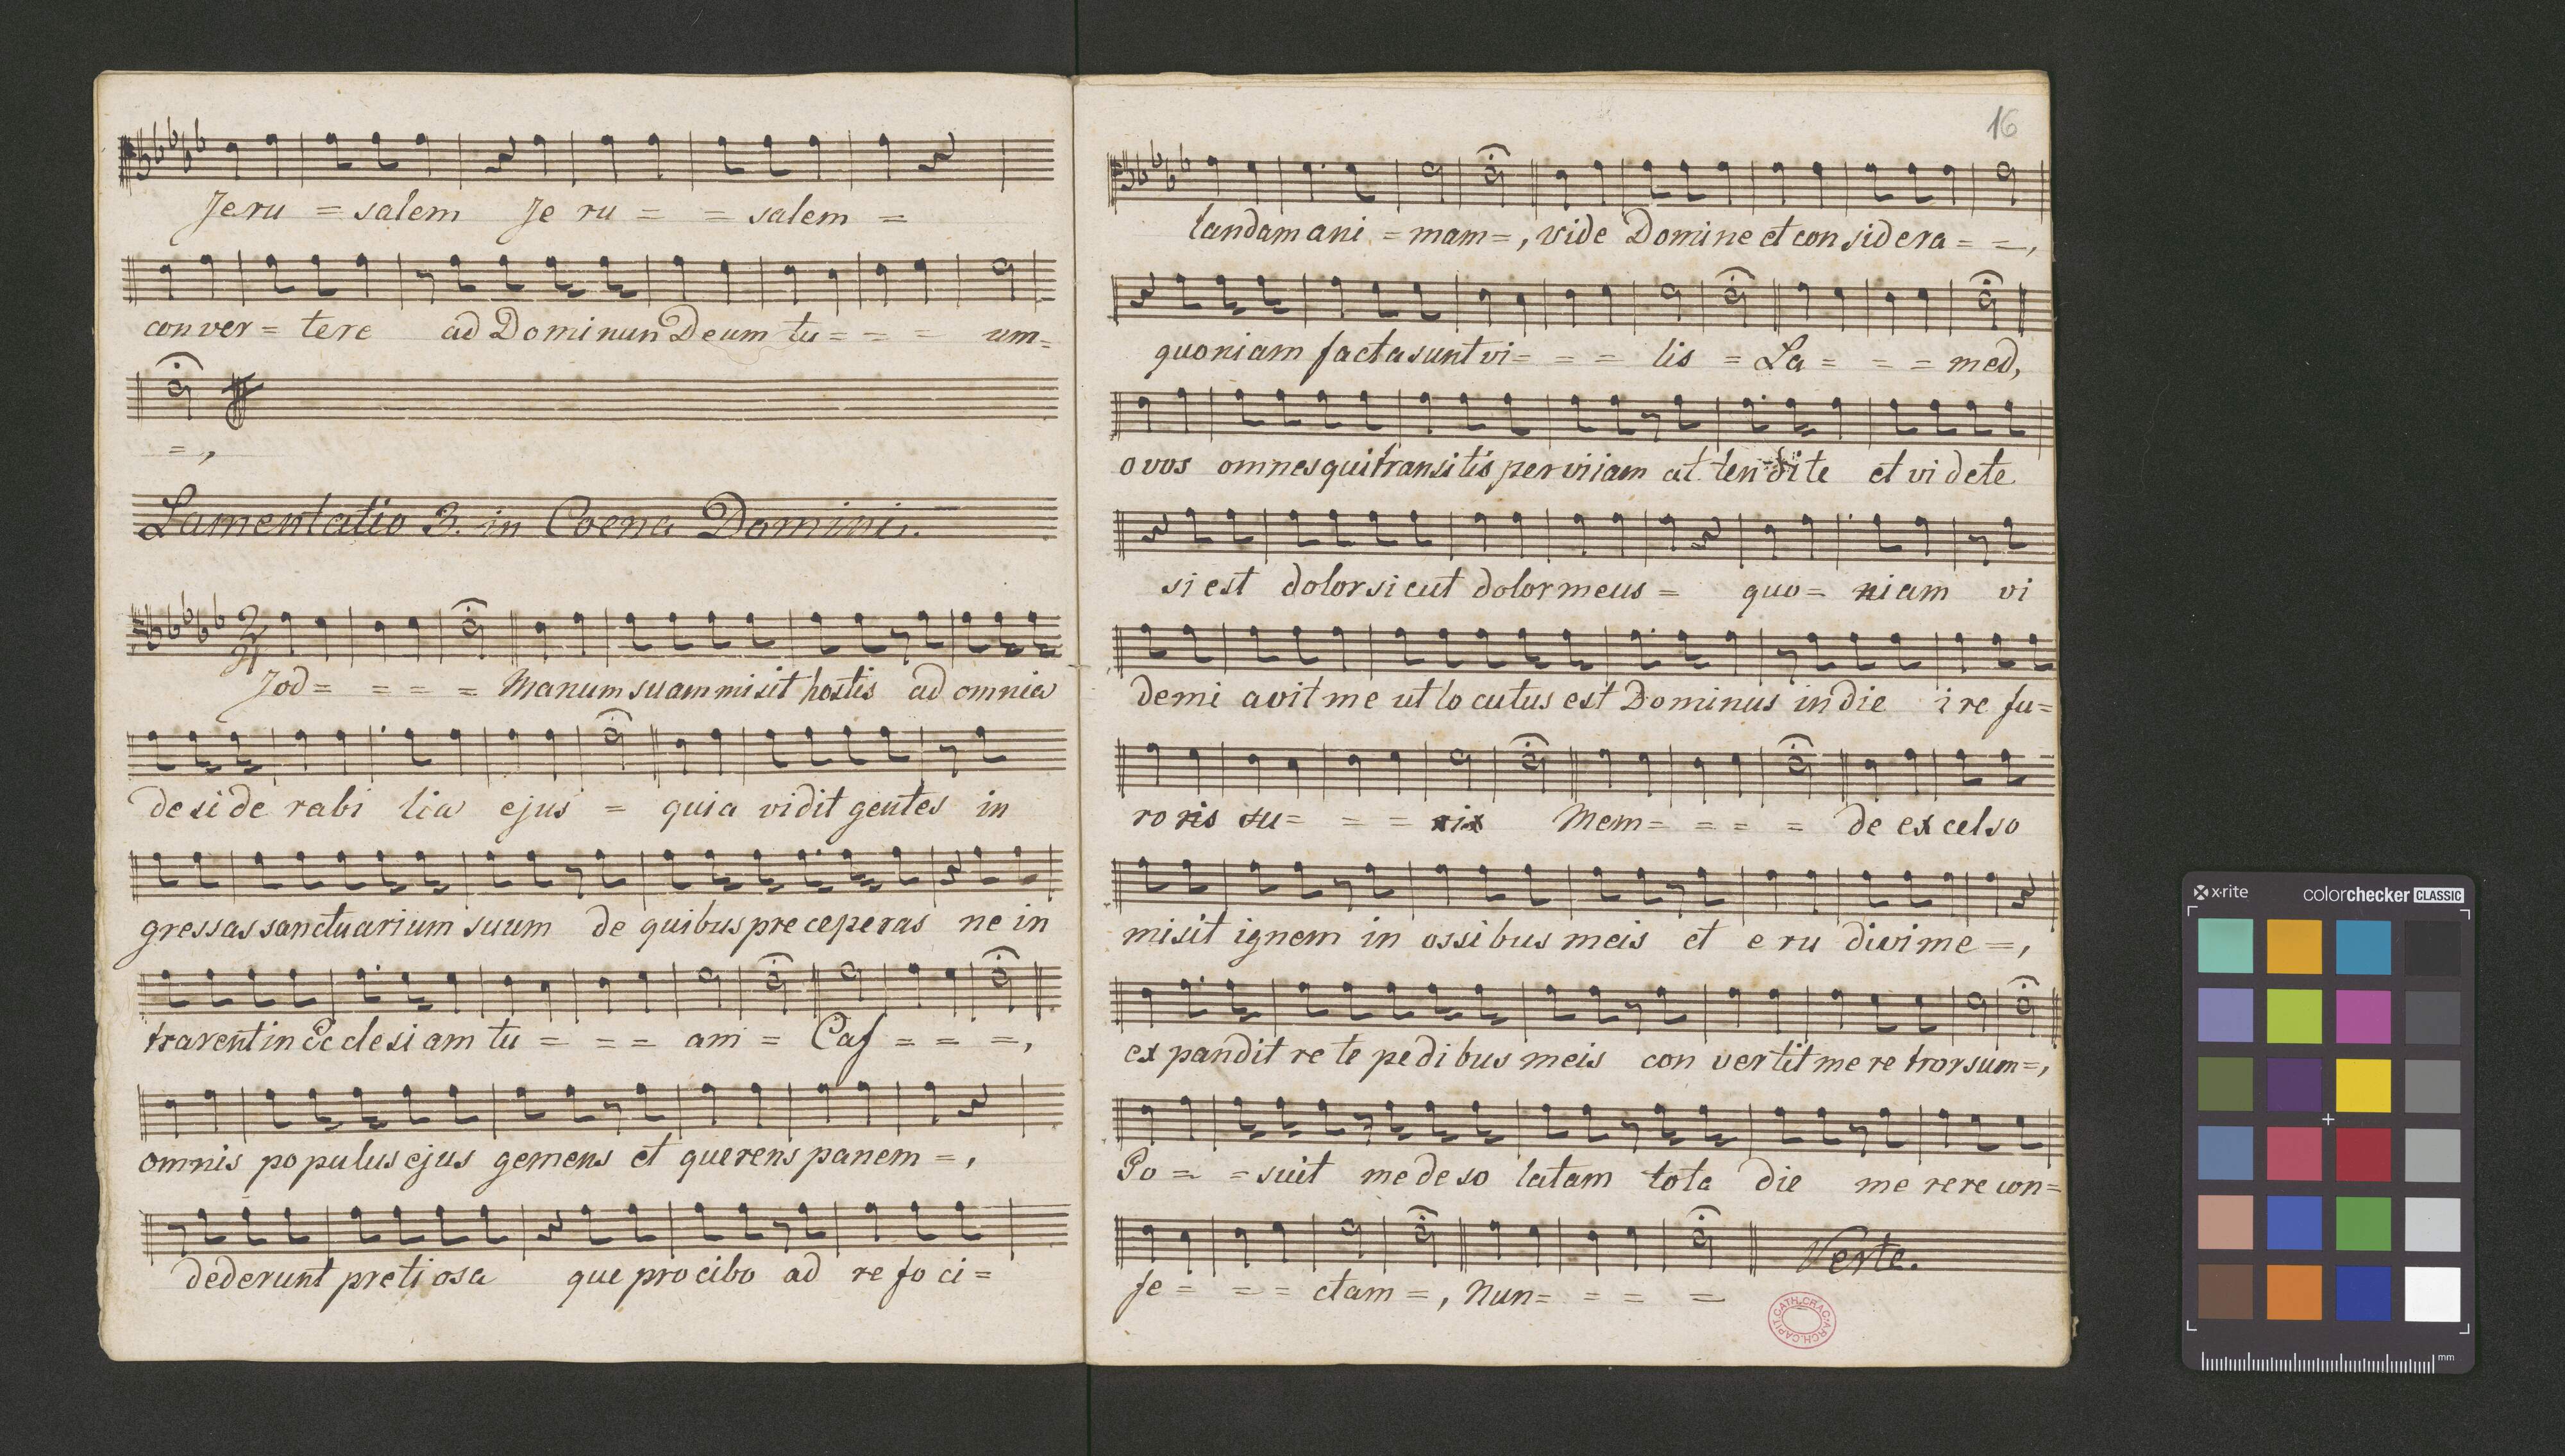 Jeru = salem Je ru = = salem =
conver = tere ad Dominun Deum tu = = = um =
= ,
Lamentatio 3. in Coena Domini.
Jod = = = = Manum suam misit hostis ad omnia
de si de rabi lia ejus = quia vidit gentes in
gressas sanctuarium suum de quibus pre ceperas ne in
trarent in Ecclesiam tu = = = am = Caf = = =,
omnis populus ejus gemens et querens panem =,
dederunt preti osa que pro cibo ad re fo ci =
16
landam ani = mam =, vide Domine et con sidera = =,
quoniam facta sunt vi = = = lis = La = = = med,
o vos omnes qui transitis per viiam at ten dite et vi dete
si est dolor sicut dolor meus = quo = niam vi
demi avit me ut lo cutus est Dominus in die i re fu =
ro ris su = = = Mem = = = = de ex celso
misit ignem in ossi bus meis et e ru divi me =,
ex pandit re te pe di bus meis con vertit me re trorsum =,
Po = = suit me de so latam tota die me rere con =
fe = = = ctam =, Nun = = = =
Verte.
CATH. CRAC. ARCH. CAPIT.
x·rite
colorchecker CLASSIC
mm